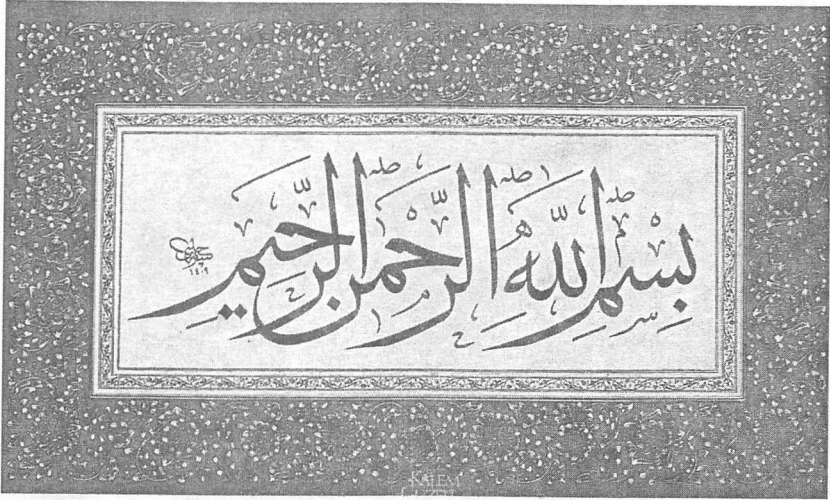 بِسْمِ اللّٰهِ الرَّحْمٰنِ الرَّحِيمِ
١٤٠٩
KALEM